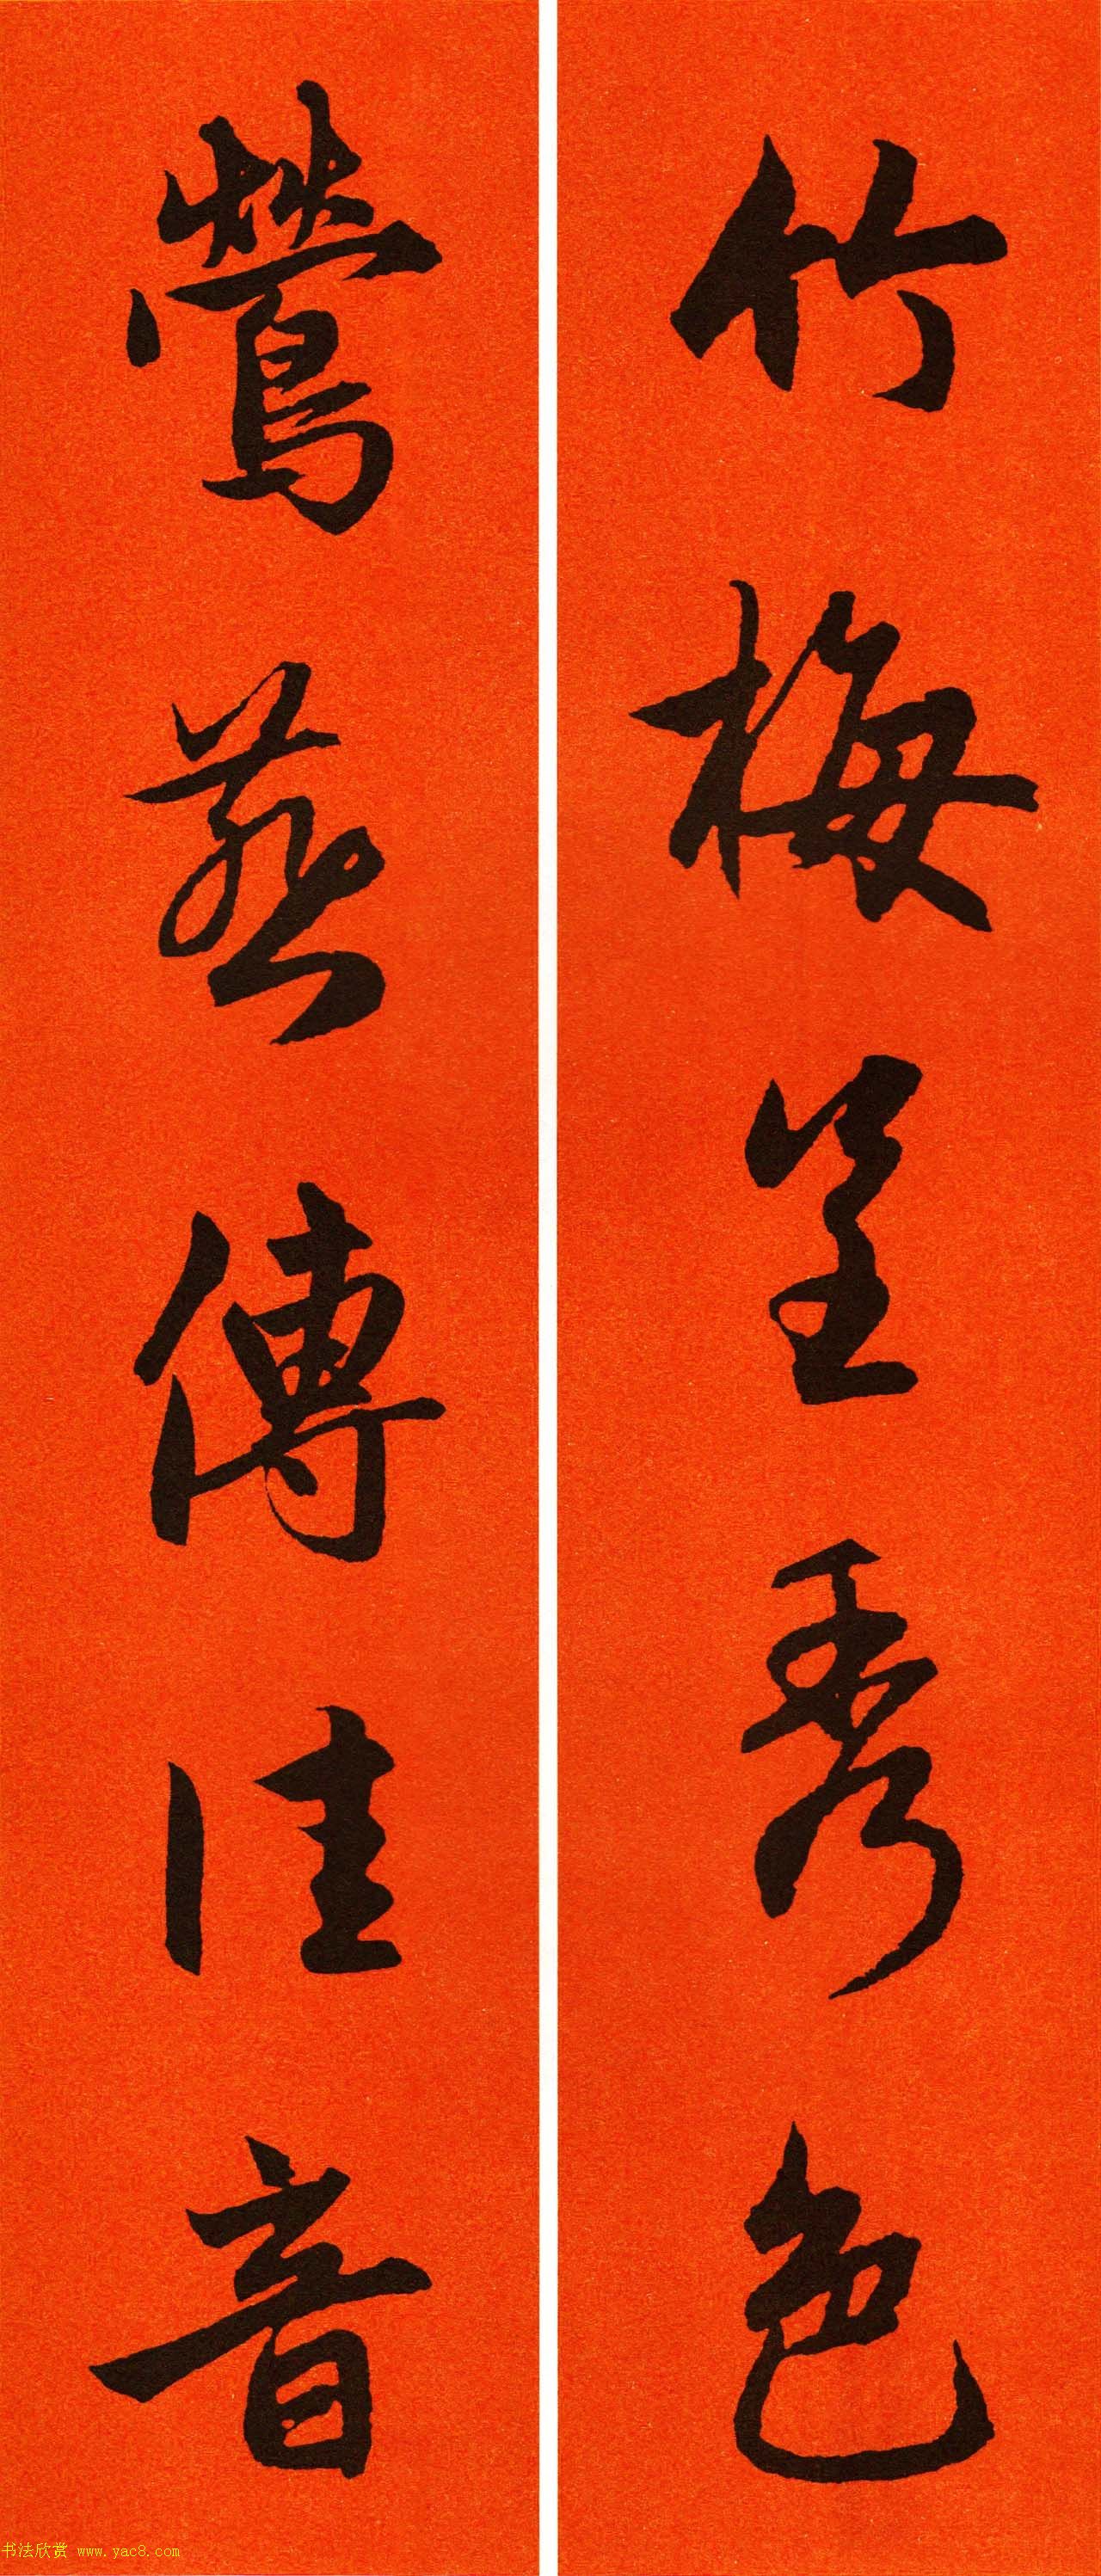 竹梅呈秀色
鶯燕傳佳音
书法欣赏 www.yac8.com